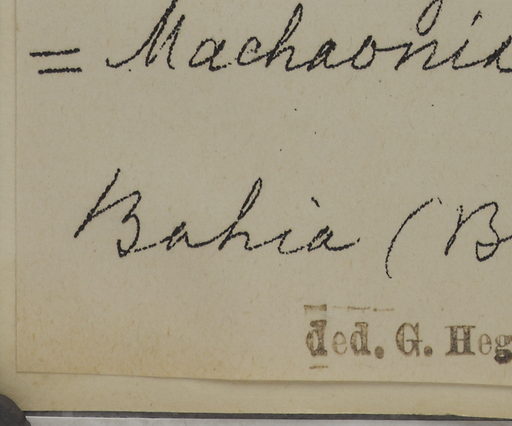 = Machaonia
Bahia (B
ded. G. Heg